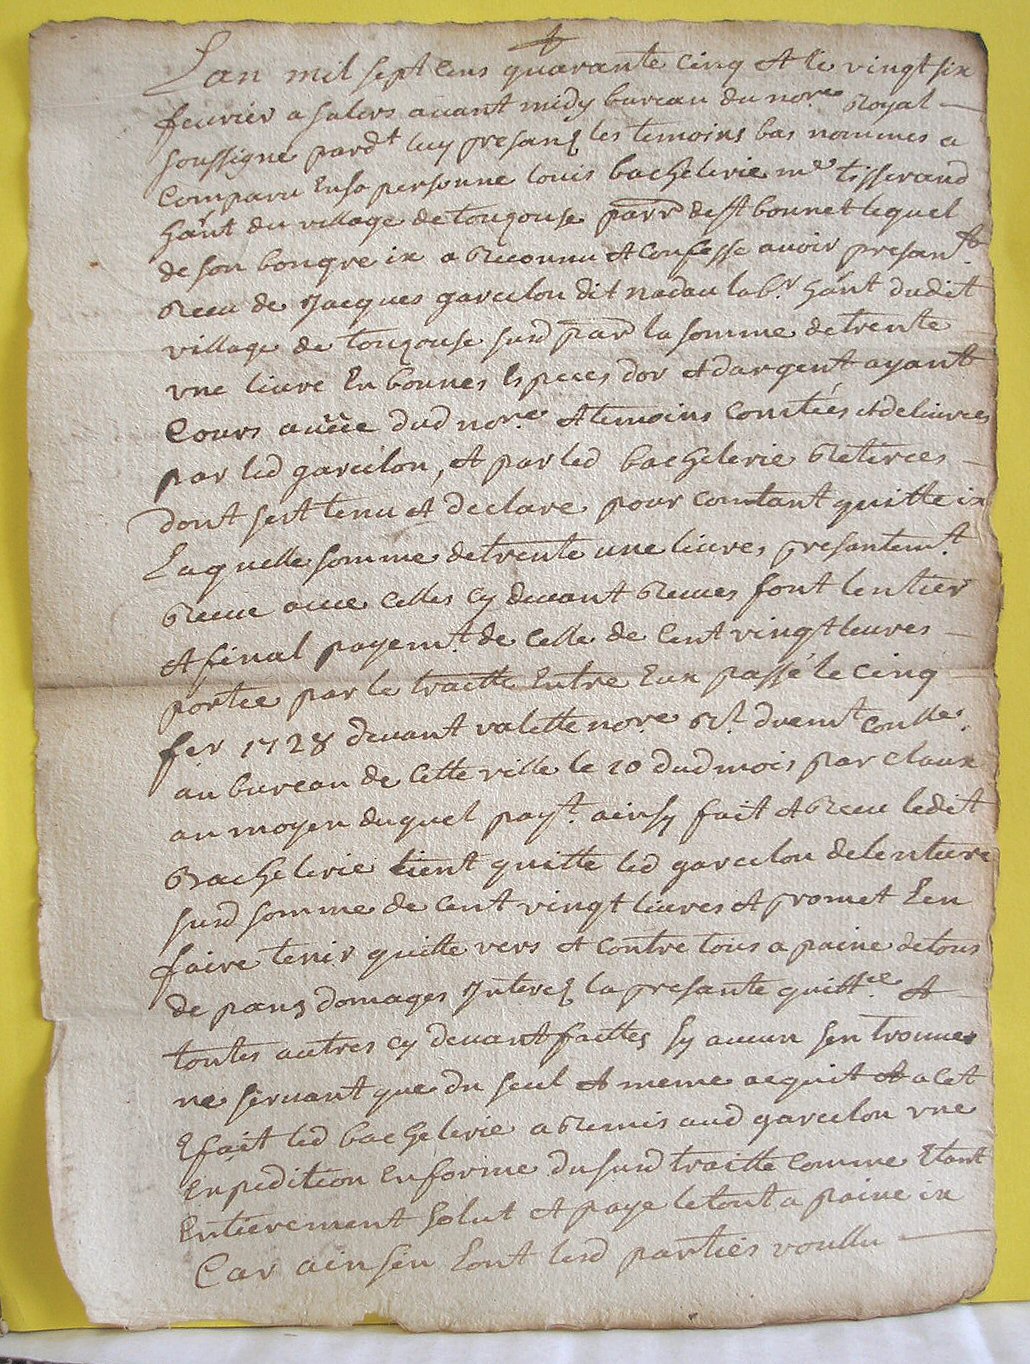 Lan mil sept cens quarante cinq et le vingt six
feuvrier a salers avant midy bureau du no.re Royal
soussigne pardt luy presans les temoins bas nommes a
Comparu En sa personne louis bachelerie me tisserand
hant du village de tougouse parr de st bonnet lequel
de son bon gre ix a Reconnu et confesse avoir presant
Receu de Jacques garcelon dit nadau labr hant dudit
village de tougouse susd parr la somme de trente
vne livre En bonnes Especes dor et dargent ayant
Cours a vëüe dud no.re et temoins comtées et delivrees
par led garcelon, et par led bachelerie Retirees
dont sest tenu et declare pour contant quitte ix
Laquelle somme de trente une livres presantemt
Receue avec celles cy devant Receues font lentier
et final payemt de celle de cent vingt livres
portee par le traitte Entre Eux passé le cinq
fer 1728 devant valette no.re Rl duemt conlle
au bureau de cette ville le 10 dud mois par Claux
au moyen duquel payt. ainsy fait et Receu ledit
Bachelerie tient quitte led garcelon de lentiere
susd somme de cent vingt livres et promet Len
faire tenir quitte vers et contre tous a paine de tous
de pans domages Interes la presante quittce et
toutes autres cy devant faittes sy aucun sen trouver
ne servant que du seul et meme acquit et a cet
Efait led bachelerie a Remis aud garcelon vne
Expedition En forme du susd traitte comme Etant
Entierement solut et paye le tout a paine ix
Car ainsin Lont lesd parties voullu